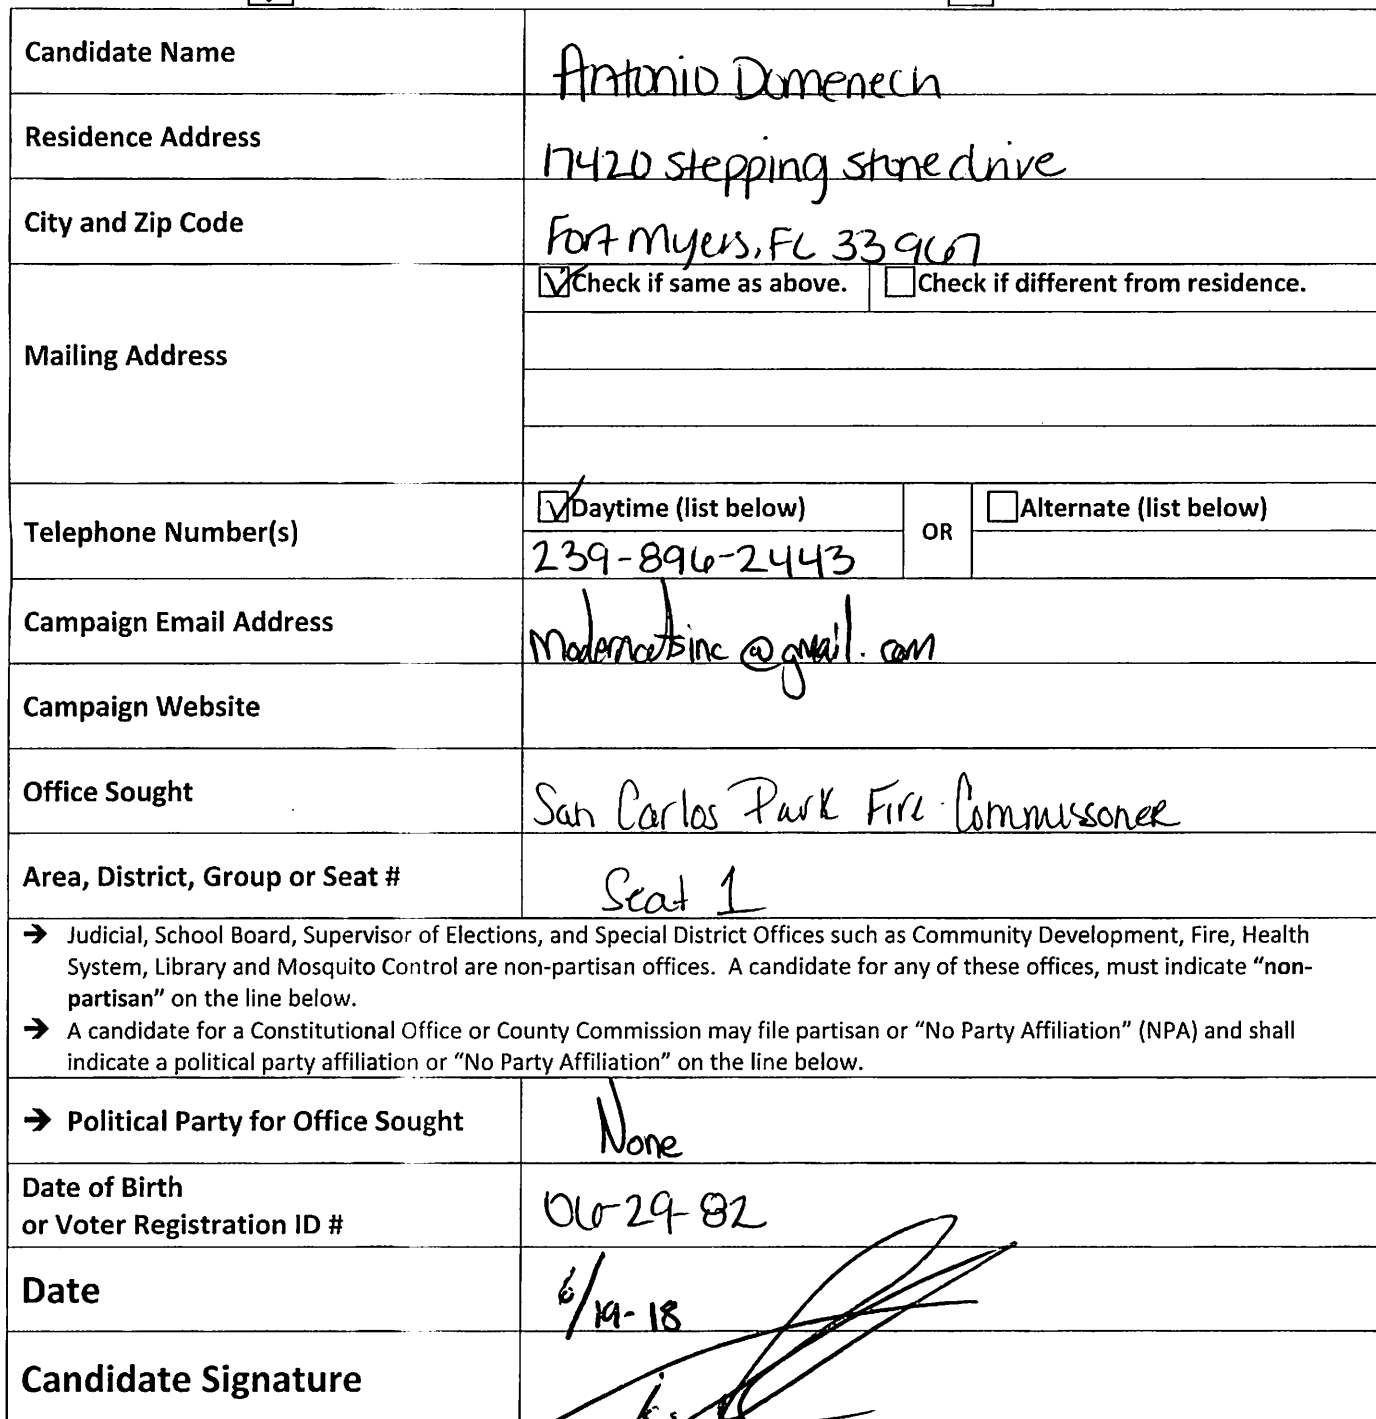 Candidate Name Antonio Domenech
Residence Address 17420 stepping stone drive
City and Zip Code Fort Myers, FL 33967
Check if same as above. Check if different from residence.
Mailing Address
Daytime (list below) OR Alternate (list below)
Telephone Number(s) 239-896-2443
Campaign Email Address @gmail.com
Campaign Website
Office Sought San Carlos Park Fire Commissoner
Area, District, Group or Seat # Seat 1
→ Judicial, School Board, Supervisor of Elections, and Special District Offices such as Community Development, Fire, Health
System, Library and Mosquito Control are non-partisan offices. A candidate for any of these offices, must indicate “non-
partisan” on the line below.
→ A candidate for a Constitutional Office or County Commission may file partisan or “No Party Affiliation” (NPA) and shall
indicate a political party affiliation or “No Party Affiliation” on the line below.
→ Political Party for Office Sought None
Date of Birth
or Voter Registration ID # 06-29-82
Date 6/19-18
Candidate Signature